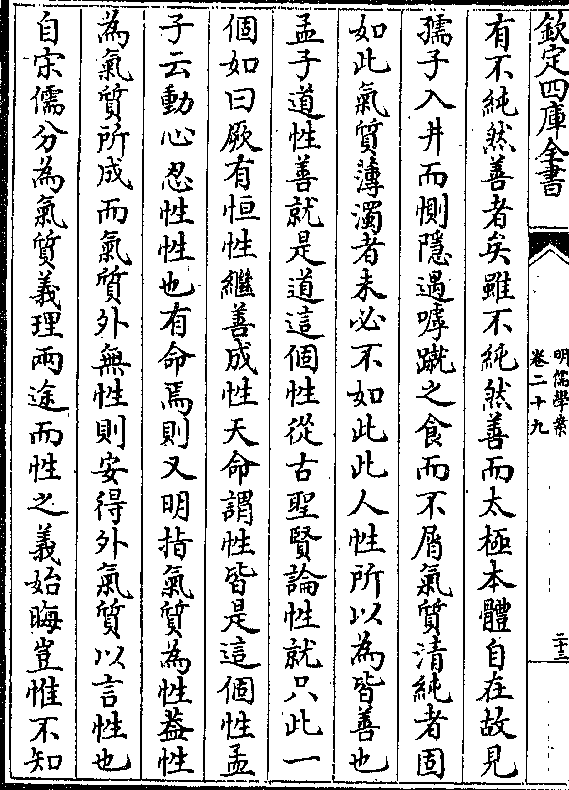 欽定四庫全書
明儒學案
卷二十九
二十三
有不純然善者矣雖不純然善而太極本體自在故見
孺子入井而惻隱遇嘑蹴之食而不屑氣質清純者固
如此氣質薄濁者未必不如此此人性所以為皆善也
孟子道性善就是道這個性從古聖賢論性就只此一
個如曰厥有恒性繼善成性天命謂性皆是這個性孟
子云動心忍性性也有命焉則又明指氣質為性葢性
為氣質所成而氣質外無性則安得外氣質以言性也
自宋儒分為氣質義理兩途而性之義始晦豈惟不知